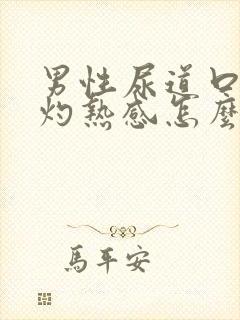 男性尿道口
灼熱感怎麼
馬平安